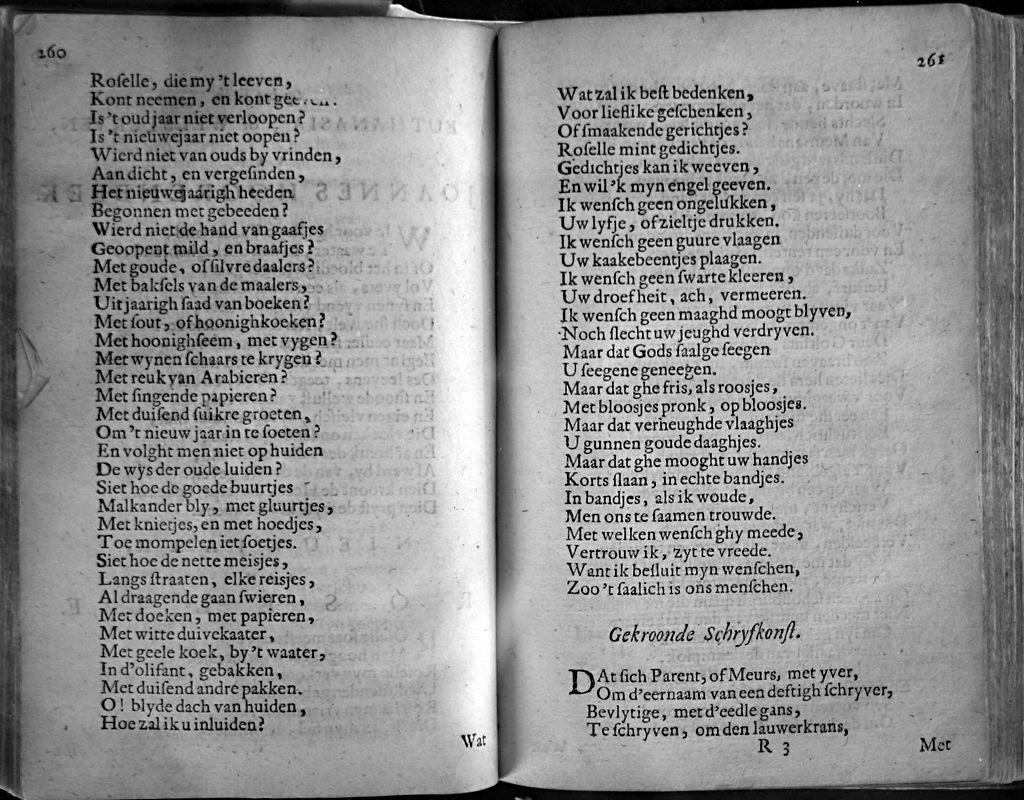 260
Roſelle, die my 't leeven,
Kont neemen, en kont
Is 't oud jaar niet verloopen?
Is 't nieuwejaar niet oopen?
Wierd niet van ouds by vrinden,
Aan dicht, en vergeſinden,
Het nieuwejaarigh heeden
Begonnen met gebeeden?
Wierd niet de hand van gaafjes
Geoopent mild, en braafjes?
Met goude, of ſilvre daalers?
Met bakſels van de maalers,
Uit jaarigh ſaad van boeken?
Met ſout, of hoonighkoeken?
Met hoonighſeem, met vygen?
Met wynen ſchaars te krygen?
Met reuk van Arabieren?
Met ſingende papieren?
Met duiſend ſuikre groeten,
Om 't nieuw jaar in te ſoeten?
En volght men niet op huiden
De wys der oude luiden?
Siet hoe de goede buurtjes
Malkander bly, met gluurtjes,
Met knietjes, en met hoedjes,
Toe mompelen iet ſoetjes.
Siet hoe de nette meisjes,
Langs ſtraaten, elke reisjes,
Al draagende gaan ſwieren,
Met doeken, met papieren,
Met witte duivekaater,
Met geele koek, by 't waater,
In d'olifant, gebakken,
Met duiſend andre pakken.
O! blyde dach van huiden,
Hoe zal ik u inluiden?
Wat
261
Wat zal ik beſt bedenken,
Voor lieflike geſchenken,
Of ſmaakende gerichtjes?
Roſelle mint gedichtjes.
Gedichtjes kan ik weeven,
En wil 'k myn engel geeven.
Ik wenſch geen ongelukken,
Uw lyfje, of zieltje drukken.
Ik wenſch geen guure vlaagen
Uw kaakebeentjes plaagen.
Ik wenſch geen ſwarte kleeren,
Uw droefheit, ach, vermeeren.
Ik wenſch geen maaghd moogt blyven,
Noch ſlecht uw jeughd verdryven.
Maar dat Gods ſaalge ſeegen
U ſeegene geneegen.
Maar dat ghe fris, als roosjes,
Met bloosjes pronk, op bloosjes.
Maar dat verheughde vlaaghjes
U gunnen goude daaghjes.
Maar dat ghe mooght uw handjes
Korts ſlaan, in echte bandjes.
In bandjes, als ik woude,
Men ons te ſaamen trouwde.
Met welken wenſch ghy meede,
Vertrouw ik, zyt te vreede.
Want ik beſluit myn wenſchen,
Zoo 't ſaalich is ons menſchen.
Gekroonde Schryfkonſt.
DAt ſich Parent, of Meurs, met yver,
Om d'eernaam van een deftigh ſchryver,
Bevlytige, met d'eedle gans,
Te ſchryven, om den lauwerkrans,
R 3
Met